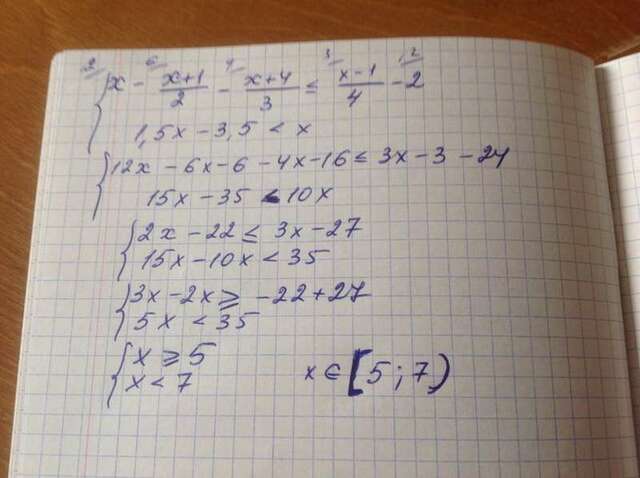 12 6 4 3 12
x - x+1/2 - x+4/3 ≤ x-1/4 - 2
1,5x - 3,5 < x
12x - 6x - 6 - 4x - 16 ≤ 3x - 3 - 24
15x - 35 < 10x
2x - 22 ≤ 3x - 27
15x - 10x < 35
3x - 2x ≥ -22 + 27
5x < 35
x ≥ 5
x < 7
x ∈ [5; 7)